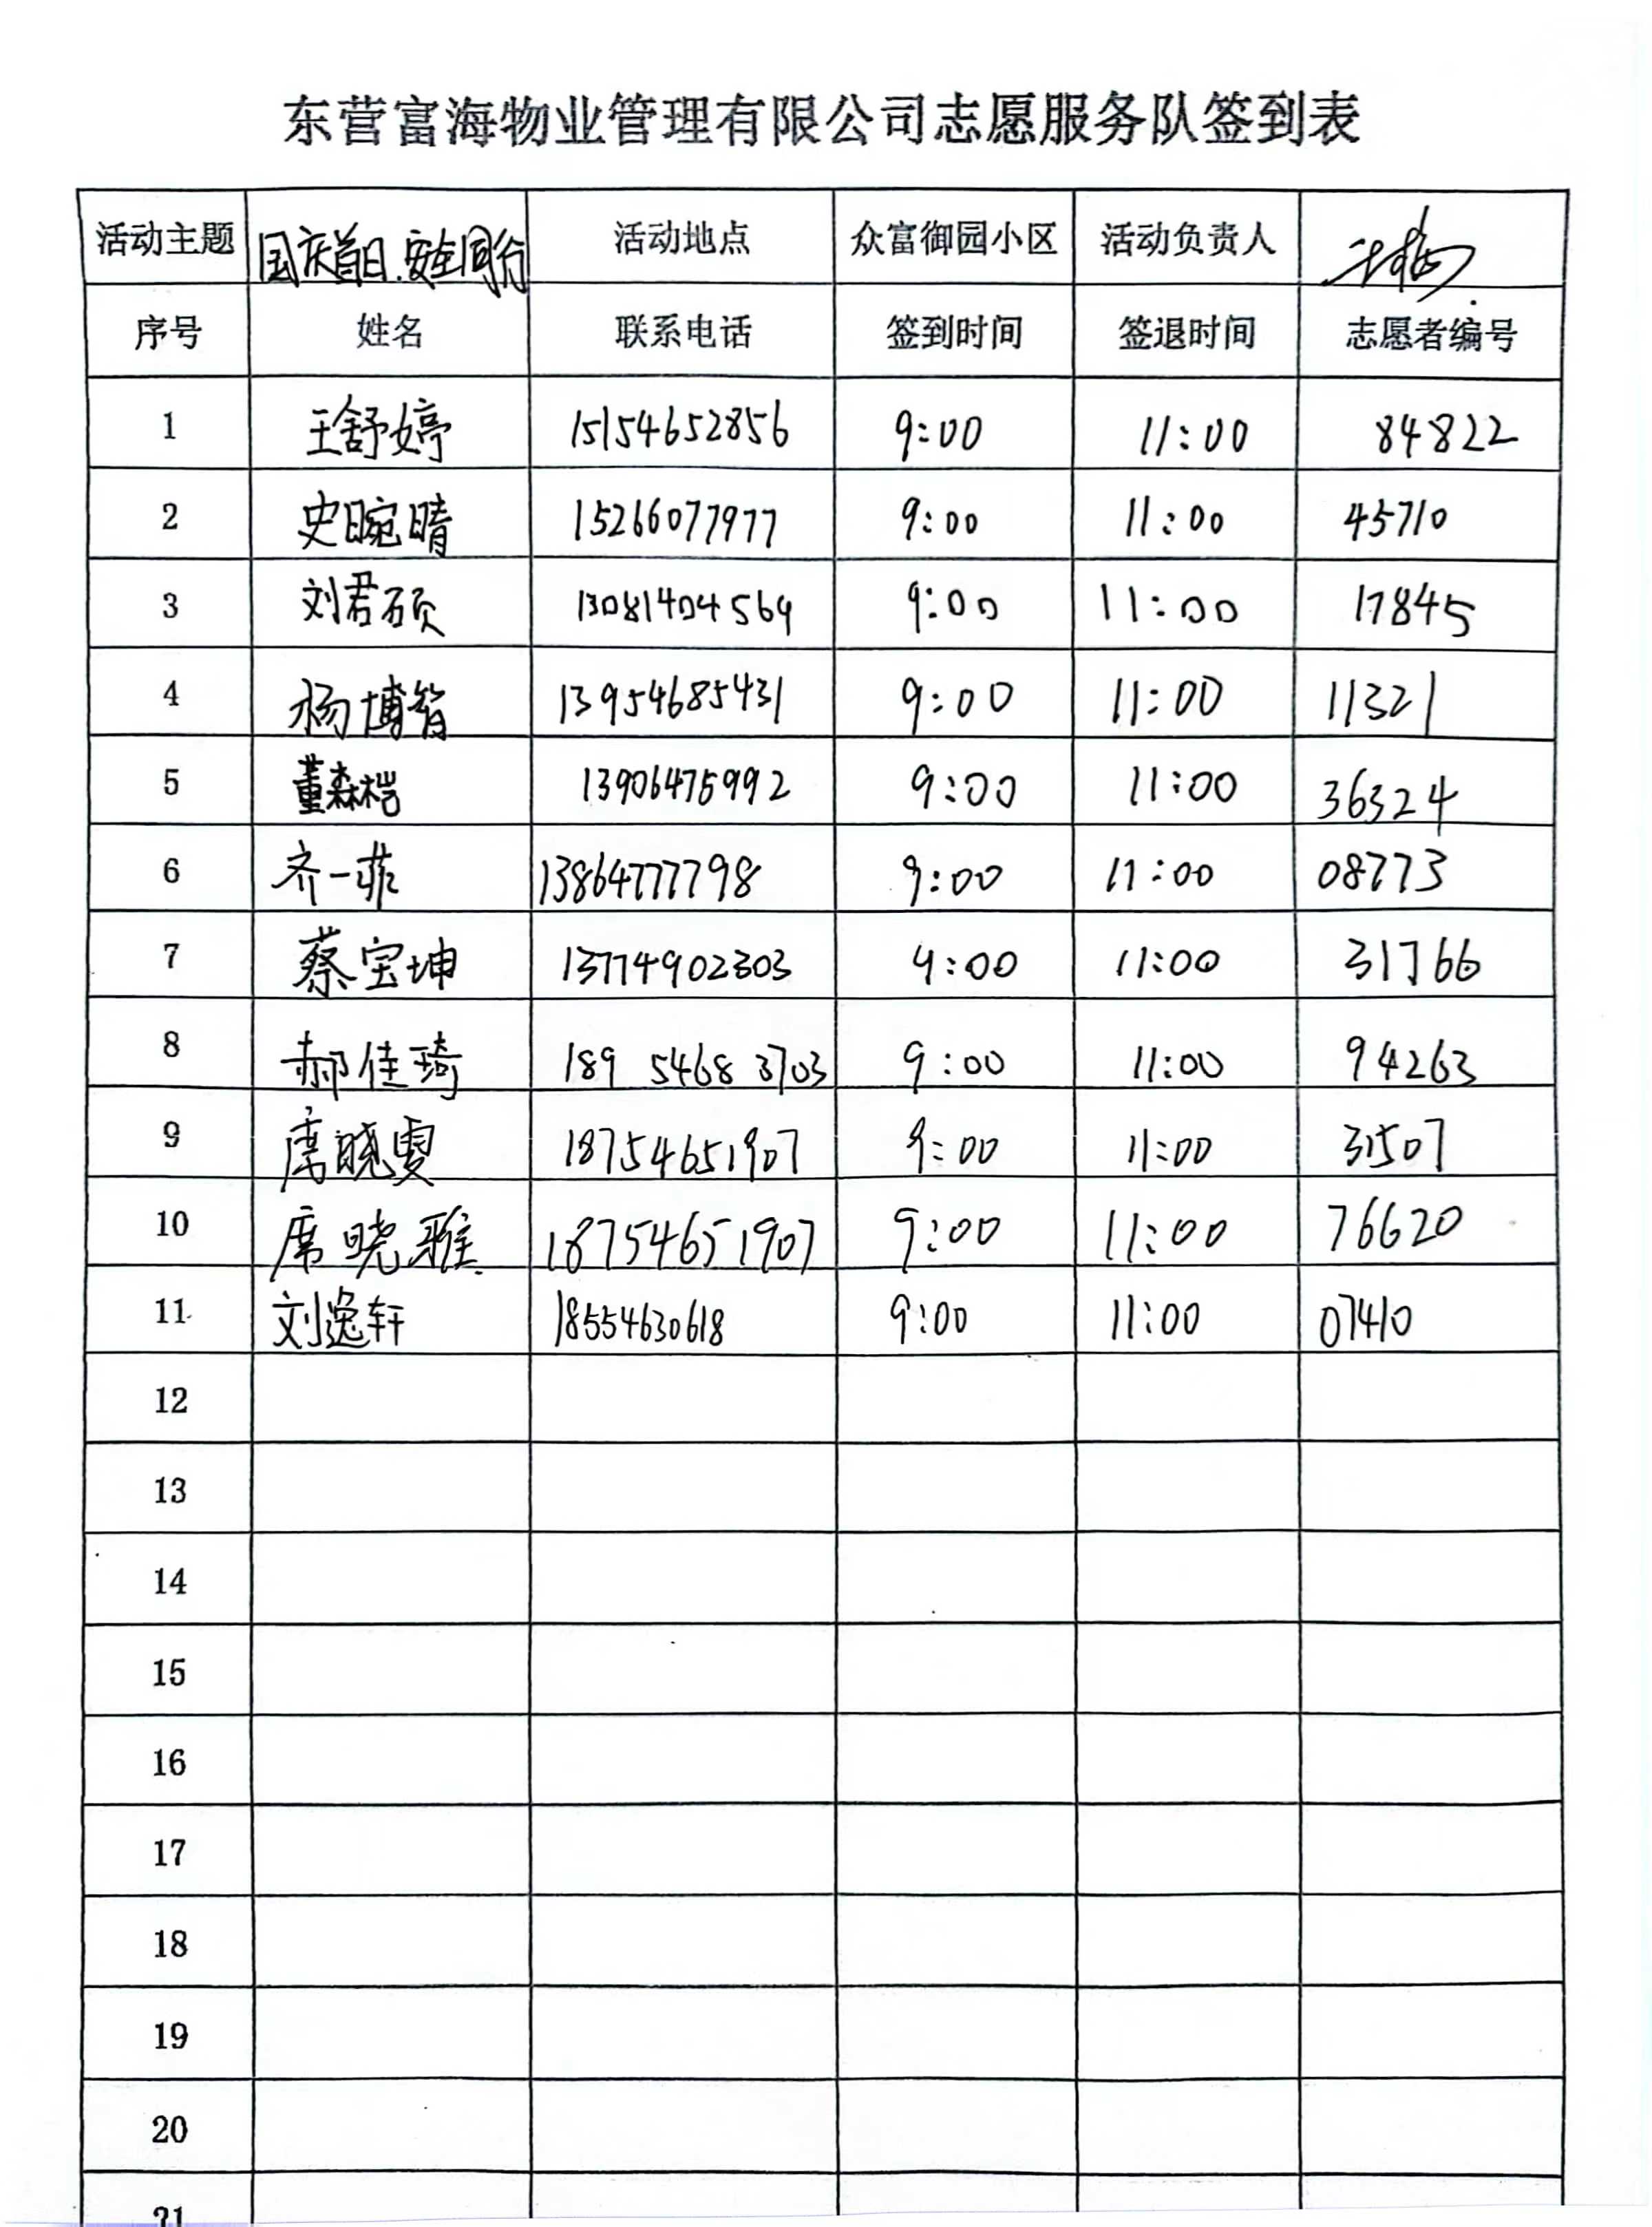 东营富海物业管理有限公司志愿服务队签到表
活动主题 国庆首日.安全同行 活动地点 众富御园小区 活动负责人
序号 姓名 联系电话 签到时间 签退时间 志愿者编号
1 王舒婷 15154652856 9:00 11:00 84822
2 史晼晴 15266077977 9:00 11:00 45710
3 刘君硕 13081404569 9:00 11:00 17845
4 杨博智 13954685431 9:00 11:00 11321
5 董森楷 13906475992 9:00 11:00 36324
6 齐一菲 13864777798 9:00 11:00 08773
7 蔡宝坤 13774902303 9:00 11:00 31766
8 郝佳琦 189 5468 3703 9:00 11:00 94263
9 席晓雯 18754651907 9:00 11:00 31507
10 席晓雅 18754651907 9:00 11:00 76620
11 刘逸轩 18554630618 9:00 11:00 07410
12
13
14
15
16
17
18
19
20
21